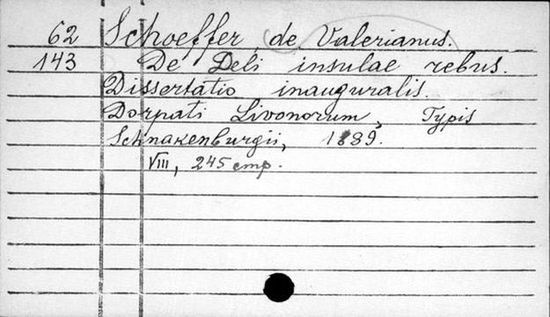 62 Schoeffer, de Valerianus.
143 De Deli insulae rebus.
Dissertatio inauguralis.
Dorpati Livonorum, Typis
Schnakenburgii, 1889.
VIII, 245 стр.